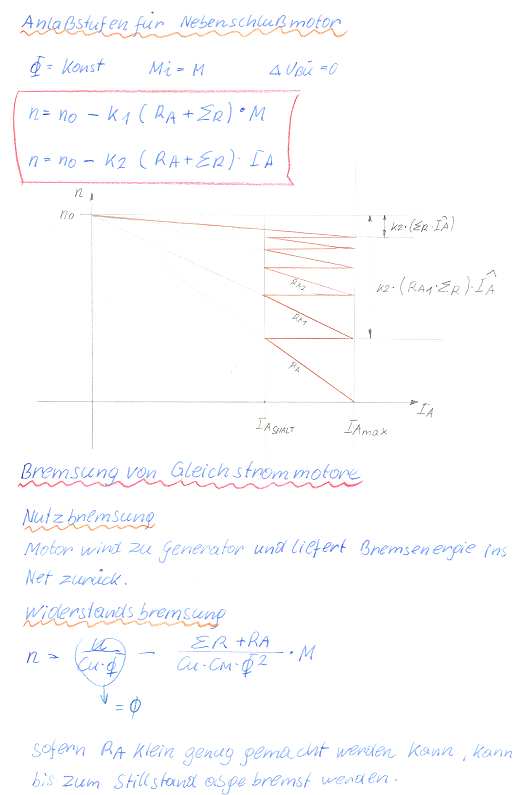 Anlaßstufen für Nebenschlußmotor
Φ = Konst Mi = M ΔUBü = 0
n = n0 - K1 (RA + ΣR) • M
n = n0 - K2 (RA + ΣR) · IA
n
n0
K2·(ΣR·ÎA)
K2·(RA1·ΣR)·ÎA
RA2
RA1
RA
IA
IASHALT
IAmax
Bremsung von Gleichstrommotore
Nutzbremsung
Motor wird zu Generator und liefert Bremsenergie ins
Net zurück.
Widerstandsbremsung
n = U/(Cu·Φ) - (ΣR + RA)/(Cu·CM·Φ²) • M
= 0
sofern RA klein genug gemacht werden kann, kann
bis zum Stillstand abgebremst werden.